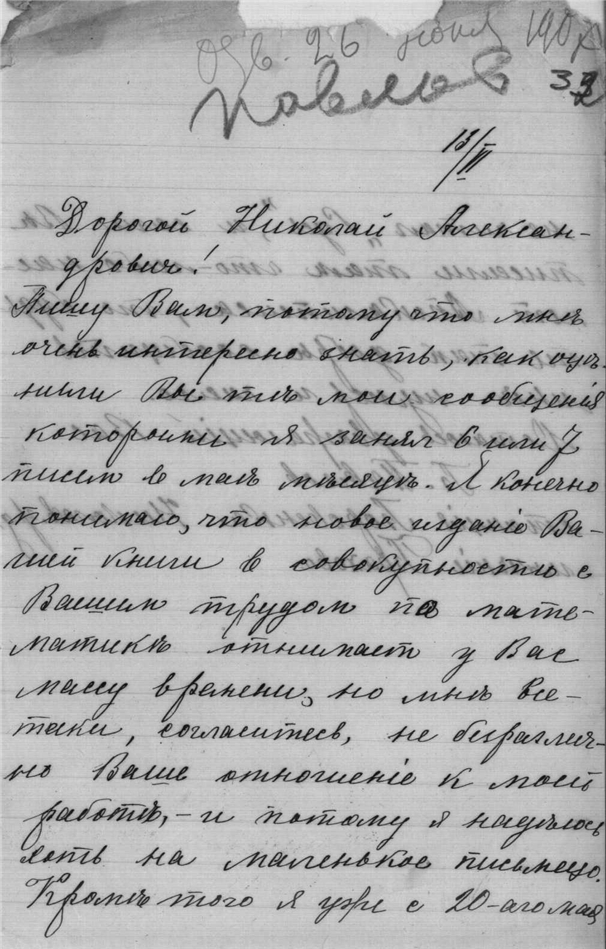 Отв. 26 июня 190
Павлов 32
13/VI
Дорогой Николай Алексан-
дрович!
Пишу Вам, потому что мнѣ
очень интересно знать, как оцѣ-
нили Вы тѣ мои сообщенія
которыми я занял 6 или 7
писем в маѣ мѣсяцѣ. Я конечно
понимаю, что новое изданіе Ва-
шей книги в совокупности с
Вашим трудом по мате-
матикѣ отнимает у Вас
массу времени, но мнѣ все-
таки, согласитесь, не безразлич-
но Ваше отношеніе к моей
работѣ, - и потому я надѣюсь
хоть на маленькое письмецо.
Кромѣ того я уже с 20-аго мая